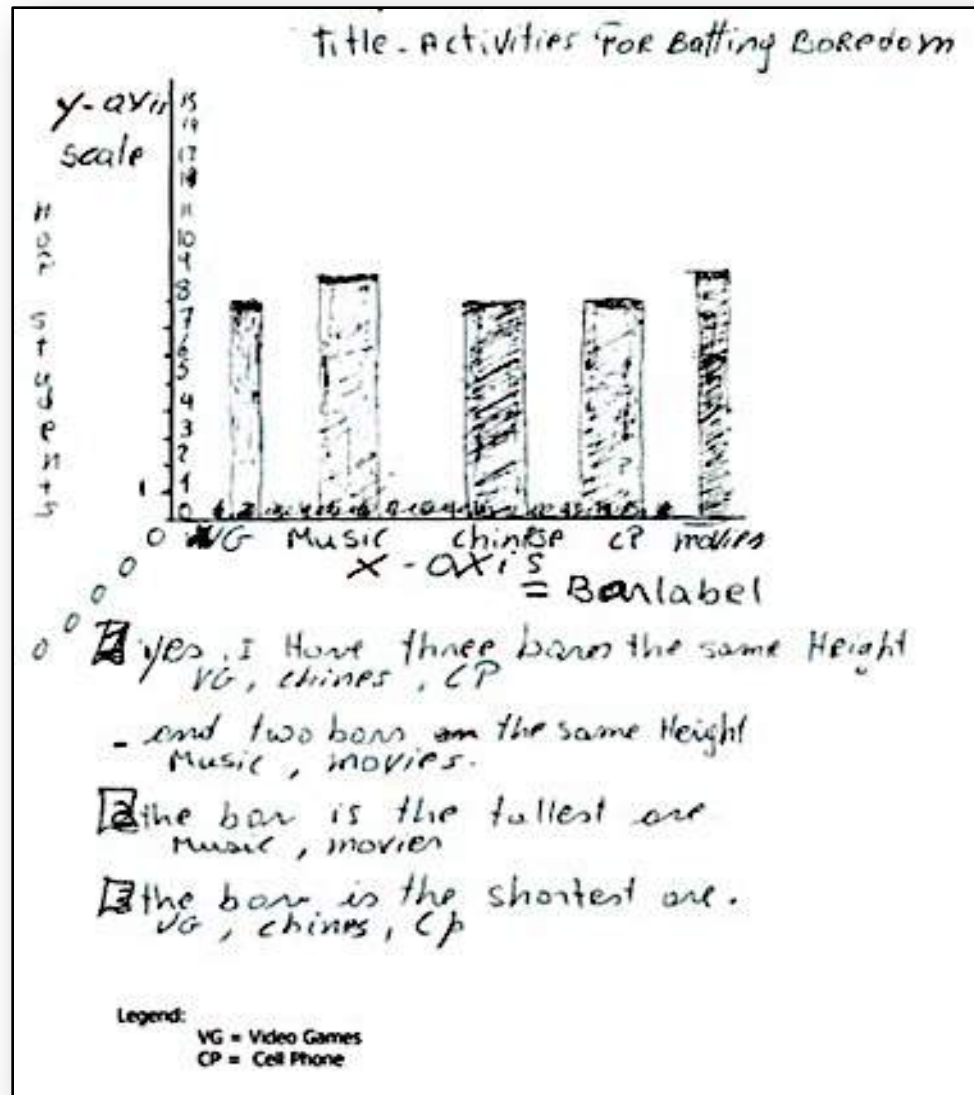 Title - Activities FOR Batting Boredom
y-axis
scale
15
14
11
10
9
8
7
6
5
4
3
2
1
0
# OF students
1
0 VG Music chinese CP movies
x-axis
= Barlabel
0
0
0
0
0
1 yes, I Have three bars the same Height
VG, chines, CP
- and two bars on the same Height
Music, movies.
2 the bar is the tallest are
Music, movies
3 the bar is the shortest are.
VG, chines, Cp
Legend:
VG = Video Games
CP = Cell Phone